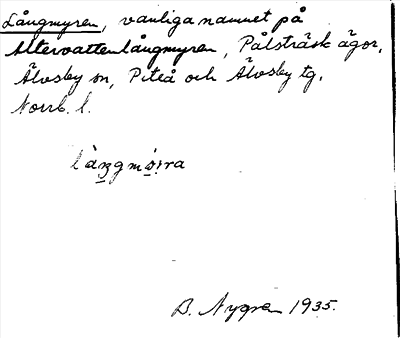 Långmyren, vanliga namnet på
Altervattenlångmyren, Pålsträsk ägor,
Älvsby sn, Piteå och Älvsby tg,
Norrb. l.
B. Nygren 1935.